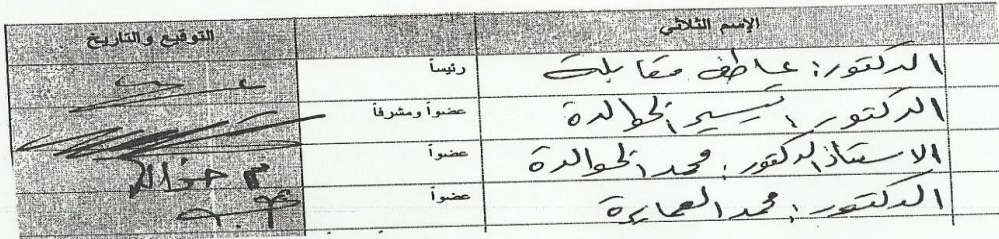 الإسم الثلاثي التوقيع والتاريخ
الدكتور: عاطف مقابلة رئيساً
الدكتور: تيسير الخوالدة عضواً ومشرفاً
الاستاذ الدكتور: محمد الخوالدة عضواً
الدكتور: محمد العمايرة عضواً